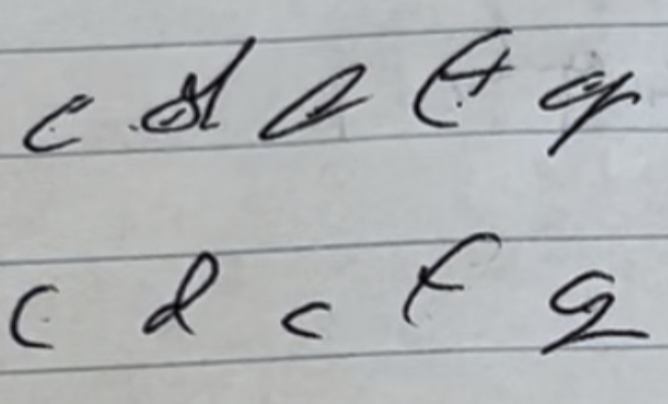 c d e f g
c d c f g